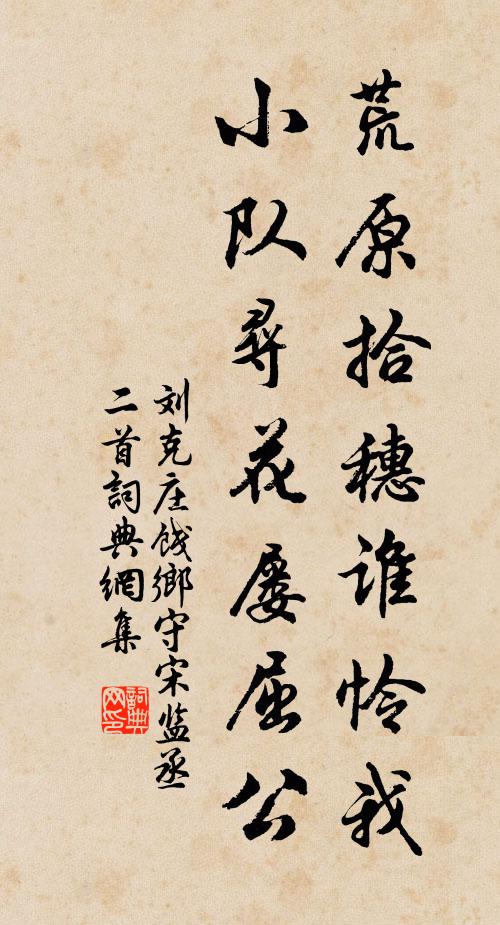 荒原拾穗谁怜我
小队寻花屡屈公
刘克庄饯鄉守宋监丞
二首詞典網集
詞典
网印